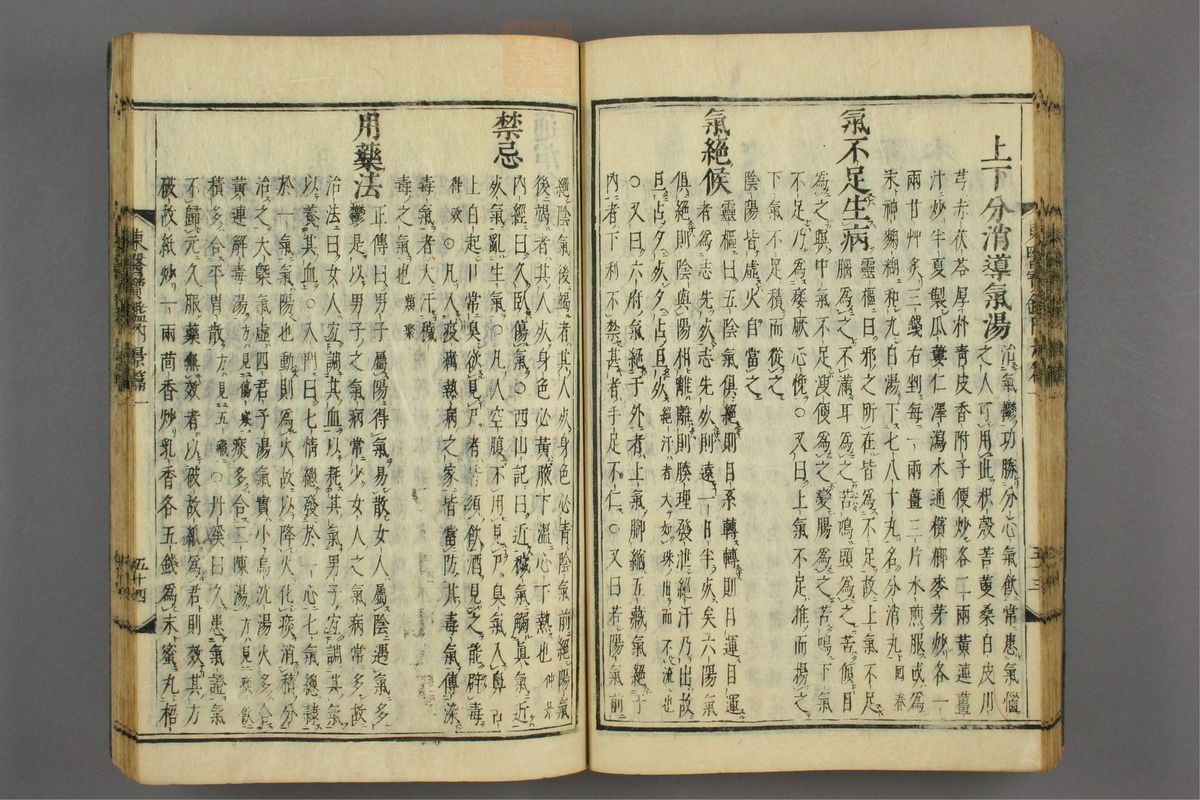 上下分消導氣湯 治氣鬱功勝分心氣飮常患氣惱
之人可用此枳殼苦莄桑白皮川
芎赤茯苓厚朴靑皮香附子便炒各二兩黃連薑
汁炒半夏製瓜蔞仁澤瀉木通檳榔麥芽炒各一
兩甘艸炙三錢右剉每一兩薑三片水煎服或爲
末神麴糊和丸白湯下七八十丸名分消丸 回春
氣不足生病 靈樞曰邪之所在皆爲不足故上氣不足
爲之腦爲之不滿耳爲之苦鳴頭爲之苦傾目
爲之眩中氣不足溲便爲之變腸爲之苦鳴下氣
不足乃爲痿厥心悗○又曰上氣不足推而揚之
下氣不足積而從之
陰陽皆虛火自當之
氣絕候 靈樞曰五陰氣俱絕則目系轉轉則目運目運
者爲志先死志先死則遠一日半死矣六陽氣
俱絕則陰與陽相離離則腠理發泄絕汗乃出故
旦占夕死夕占旦死 絕汗者大如珠出而不流也
○又曰六府氣絕于外者上氣脚縮五藏氣絕于
內者下利不禁甚者手足不仁○又曰若陽氣前
絕陰氣後竭者其人死身色必靑陰氣前絕陽氣
後竭者其人死身色必黃腋下溫心下熱也 仲景
禁忌 內經曰久臥傷氣○西山記曰近穢氣觸眞氣近
死氣亂生氣○凡人空腹不用見尸臭氣入鼻
上白起口常臭欲見尸者皆須飮酒見之能辟毒
得效 ○凡入疫癘熱病之家皆當防其毒氣傳染
毒氣者大汗穢
毒之氣也 類聚
用藥法 正傳曰男子屬陽得氣易散女人屬陰遇氣多
鬱是以男子之氣病常少女人之氣病常多故
治法曰女人宜調其血以耗其氣男子宜調其氣
以養其血○入門曰七情總發於一心七氣總隷
於一氣氣陽也動則爲火故以降火化痰消積分
治之大槩氣虛四君子湯氣實小烏沈湯火多合
黃連解毒湯 方見傷寒 痰多合二陳湯 方見痰飮
積多合平胃散 方見五藏 ○丹溪曰久患氣證氣
不歸元久服藥無效者以破故紙爲君則效其方
破故紙炒一兩茴香炒乳香各五錢爲末蜜丸梧
東醫寶鑑內景篇一
五十四